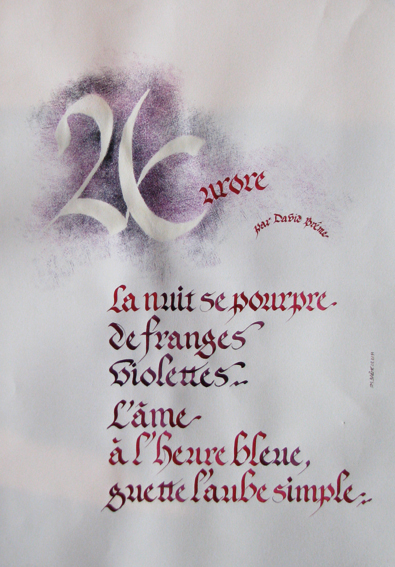 Aurore
par David
La nuit se pourpre
de franges
violettes...
L'âme
à l'heure bleue,
guette l'aube simple...